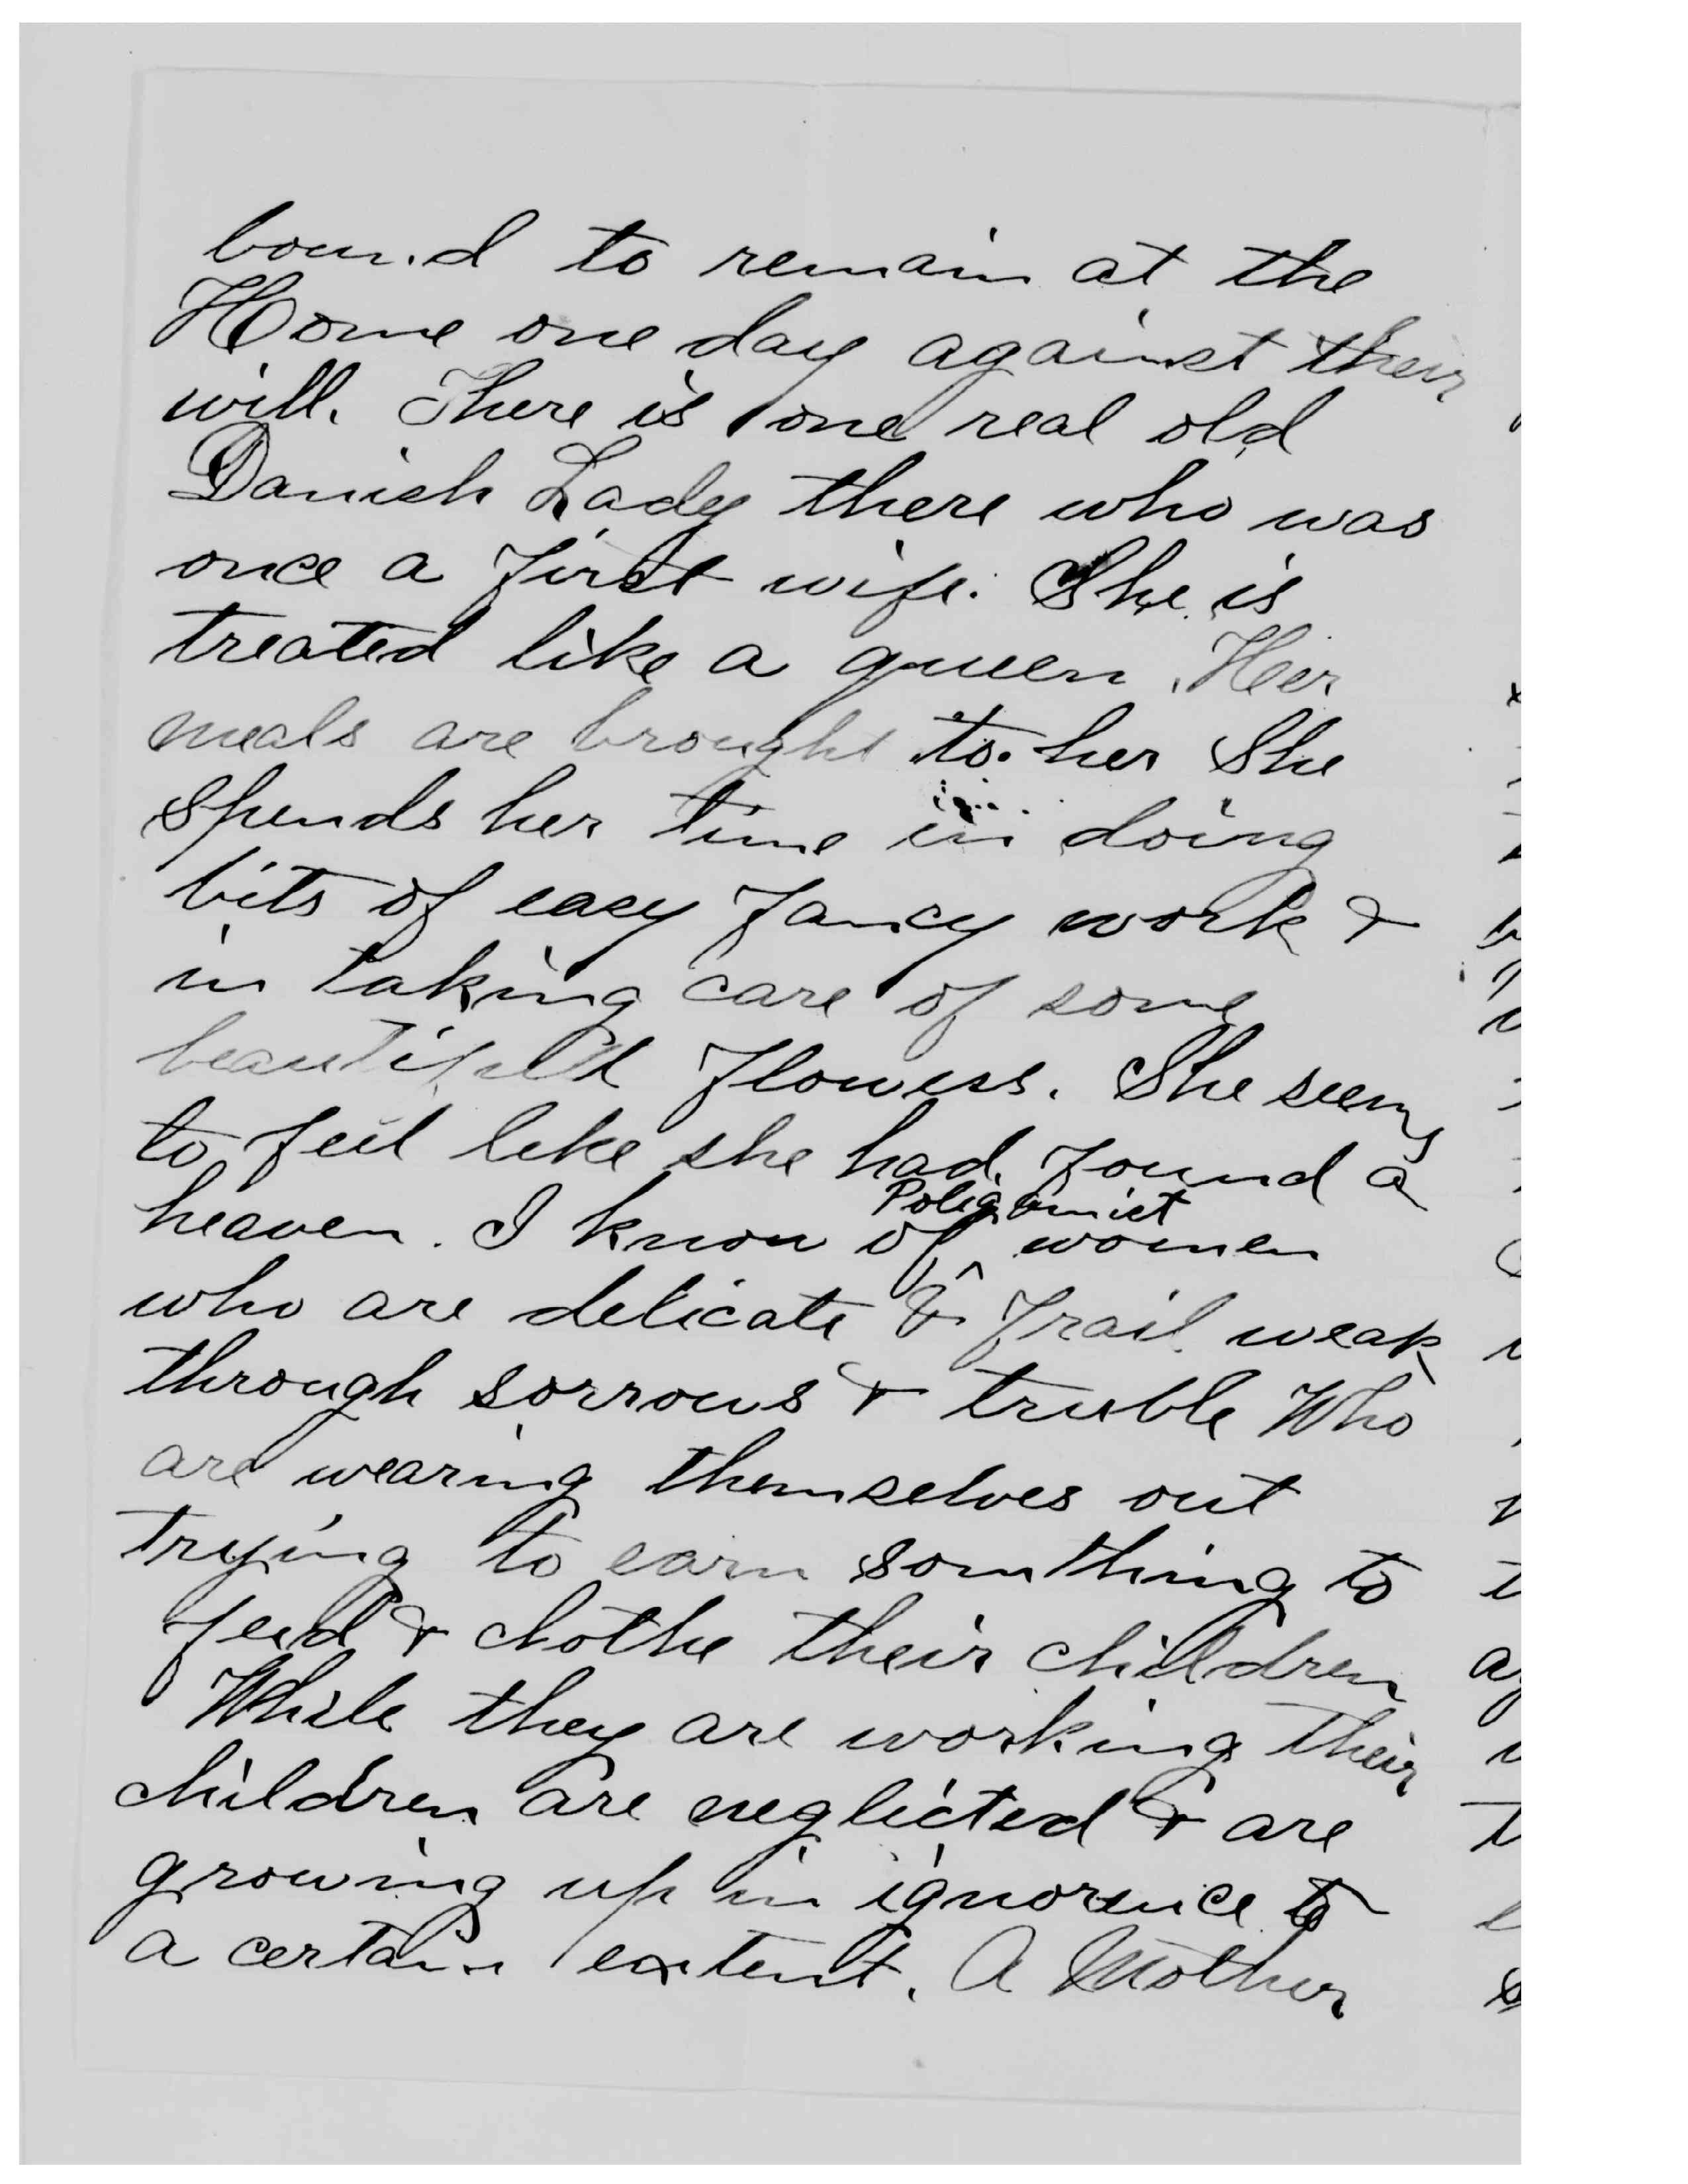 bound to remain at the
Home one day against their
will. There is one real old
Danish Lady there who was
once a first wife. She is
treated like a queen. Her
meals are brought to her She
spends her time in doing
bits of easy fancy work &
in taking care of some
beautifull flowers. She seems
to feel like she had found a
Poligamist
heaven. I know of ^ women
who are delicate & frail weak
through sorrows & truble Who
are wearing themselves out
trying to earn somthing to
feed & clothe their children
While they are working their
children are neglected & are
growing up in ignorence to
a certain extent. A Mother